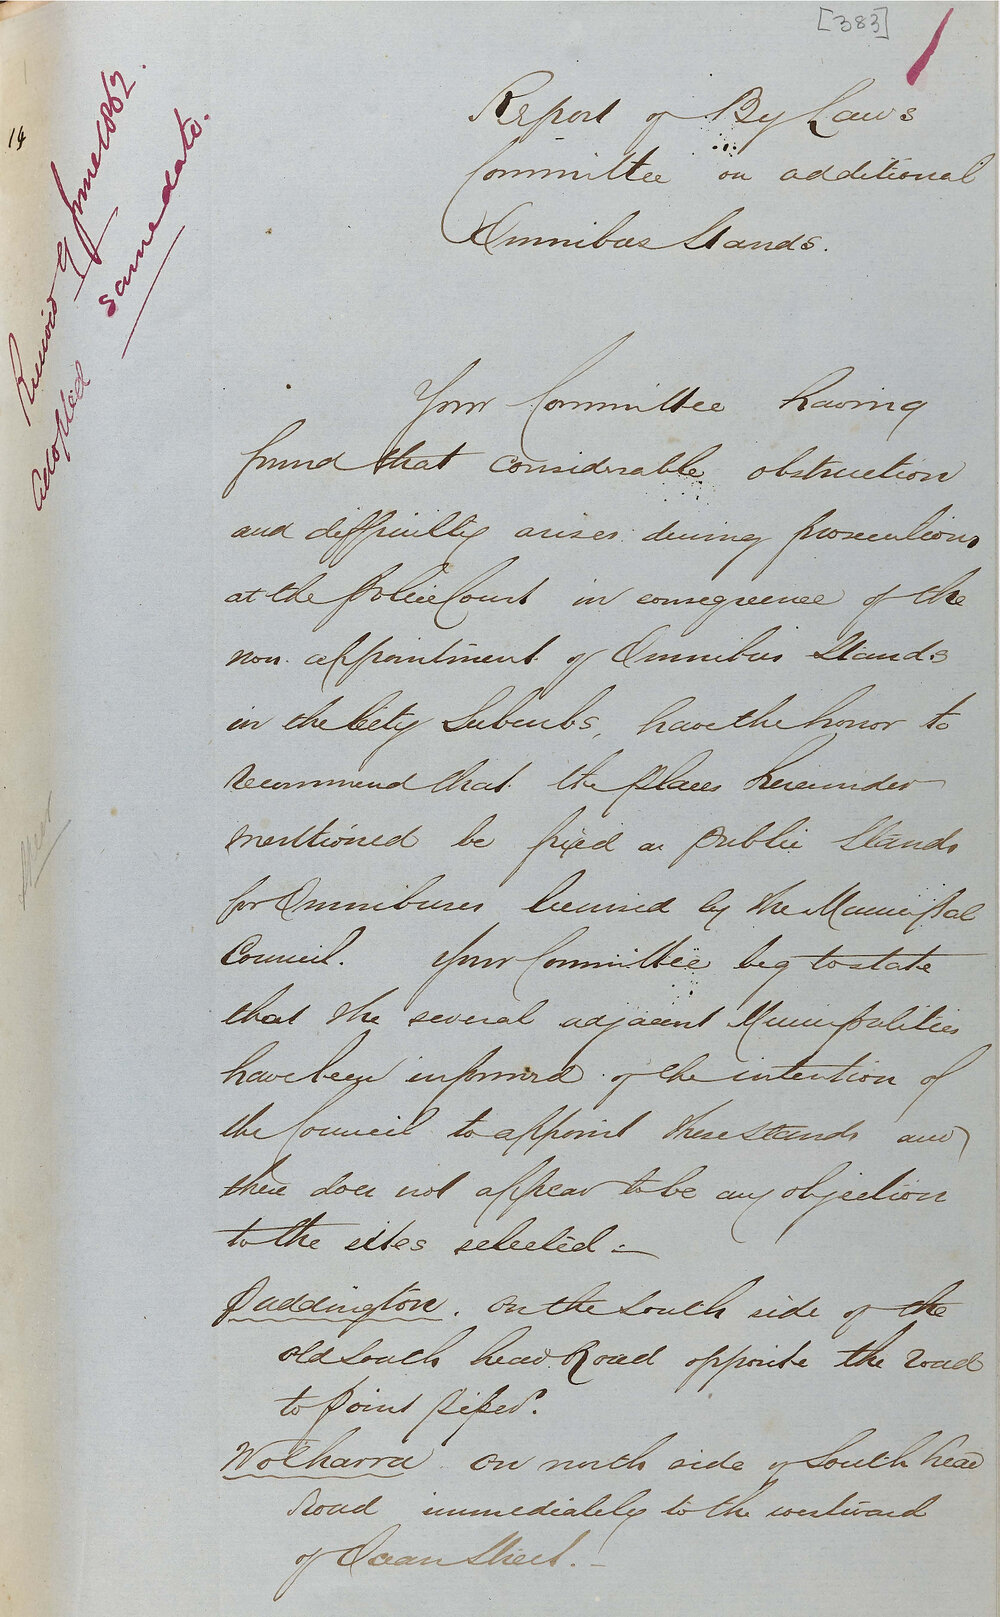 [383]
14
Received 9 June 1862
adopted same date.
Report of By Laws
Committee on additional
Omnibus Stands.
Your Committee having
found that considerable obstruction
and difficulty arises during prosecutions
at the Police Court in consequence of the
non appointment of Omnibus Stands
in the City Suburbs, have the honor to
recommend that the places hereunder
mentioned be fixed as public Stands
for Omnibuses licensed by the Municipal
Council. Your Committee beg to state
that the several adjacent Municipalities
have been informed of the intention of
the Council to appoint these Stands and
there does not appear to be any objection
to the sites selected —
Paddington. On the South side of the
old South head Road opposite the road
to Point Piper.
Wolharra On north side of South head
Road immediately to the westward
of Ocean Street. —